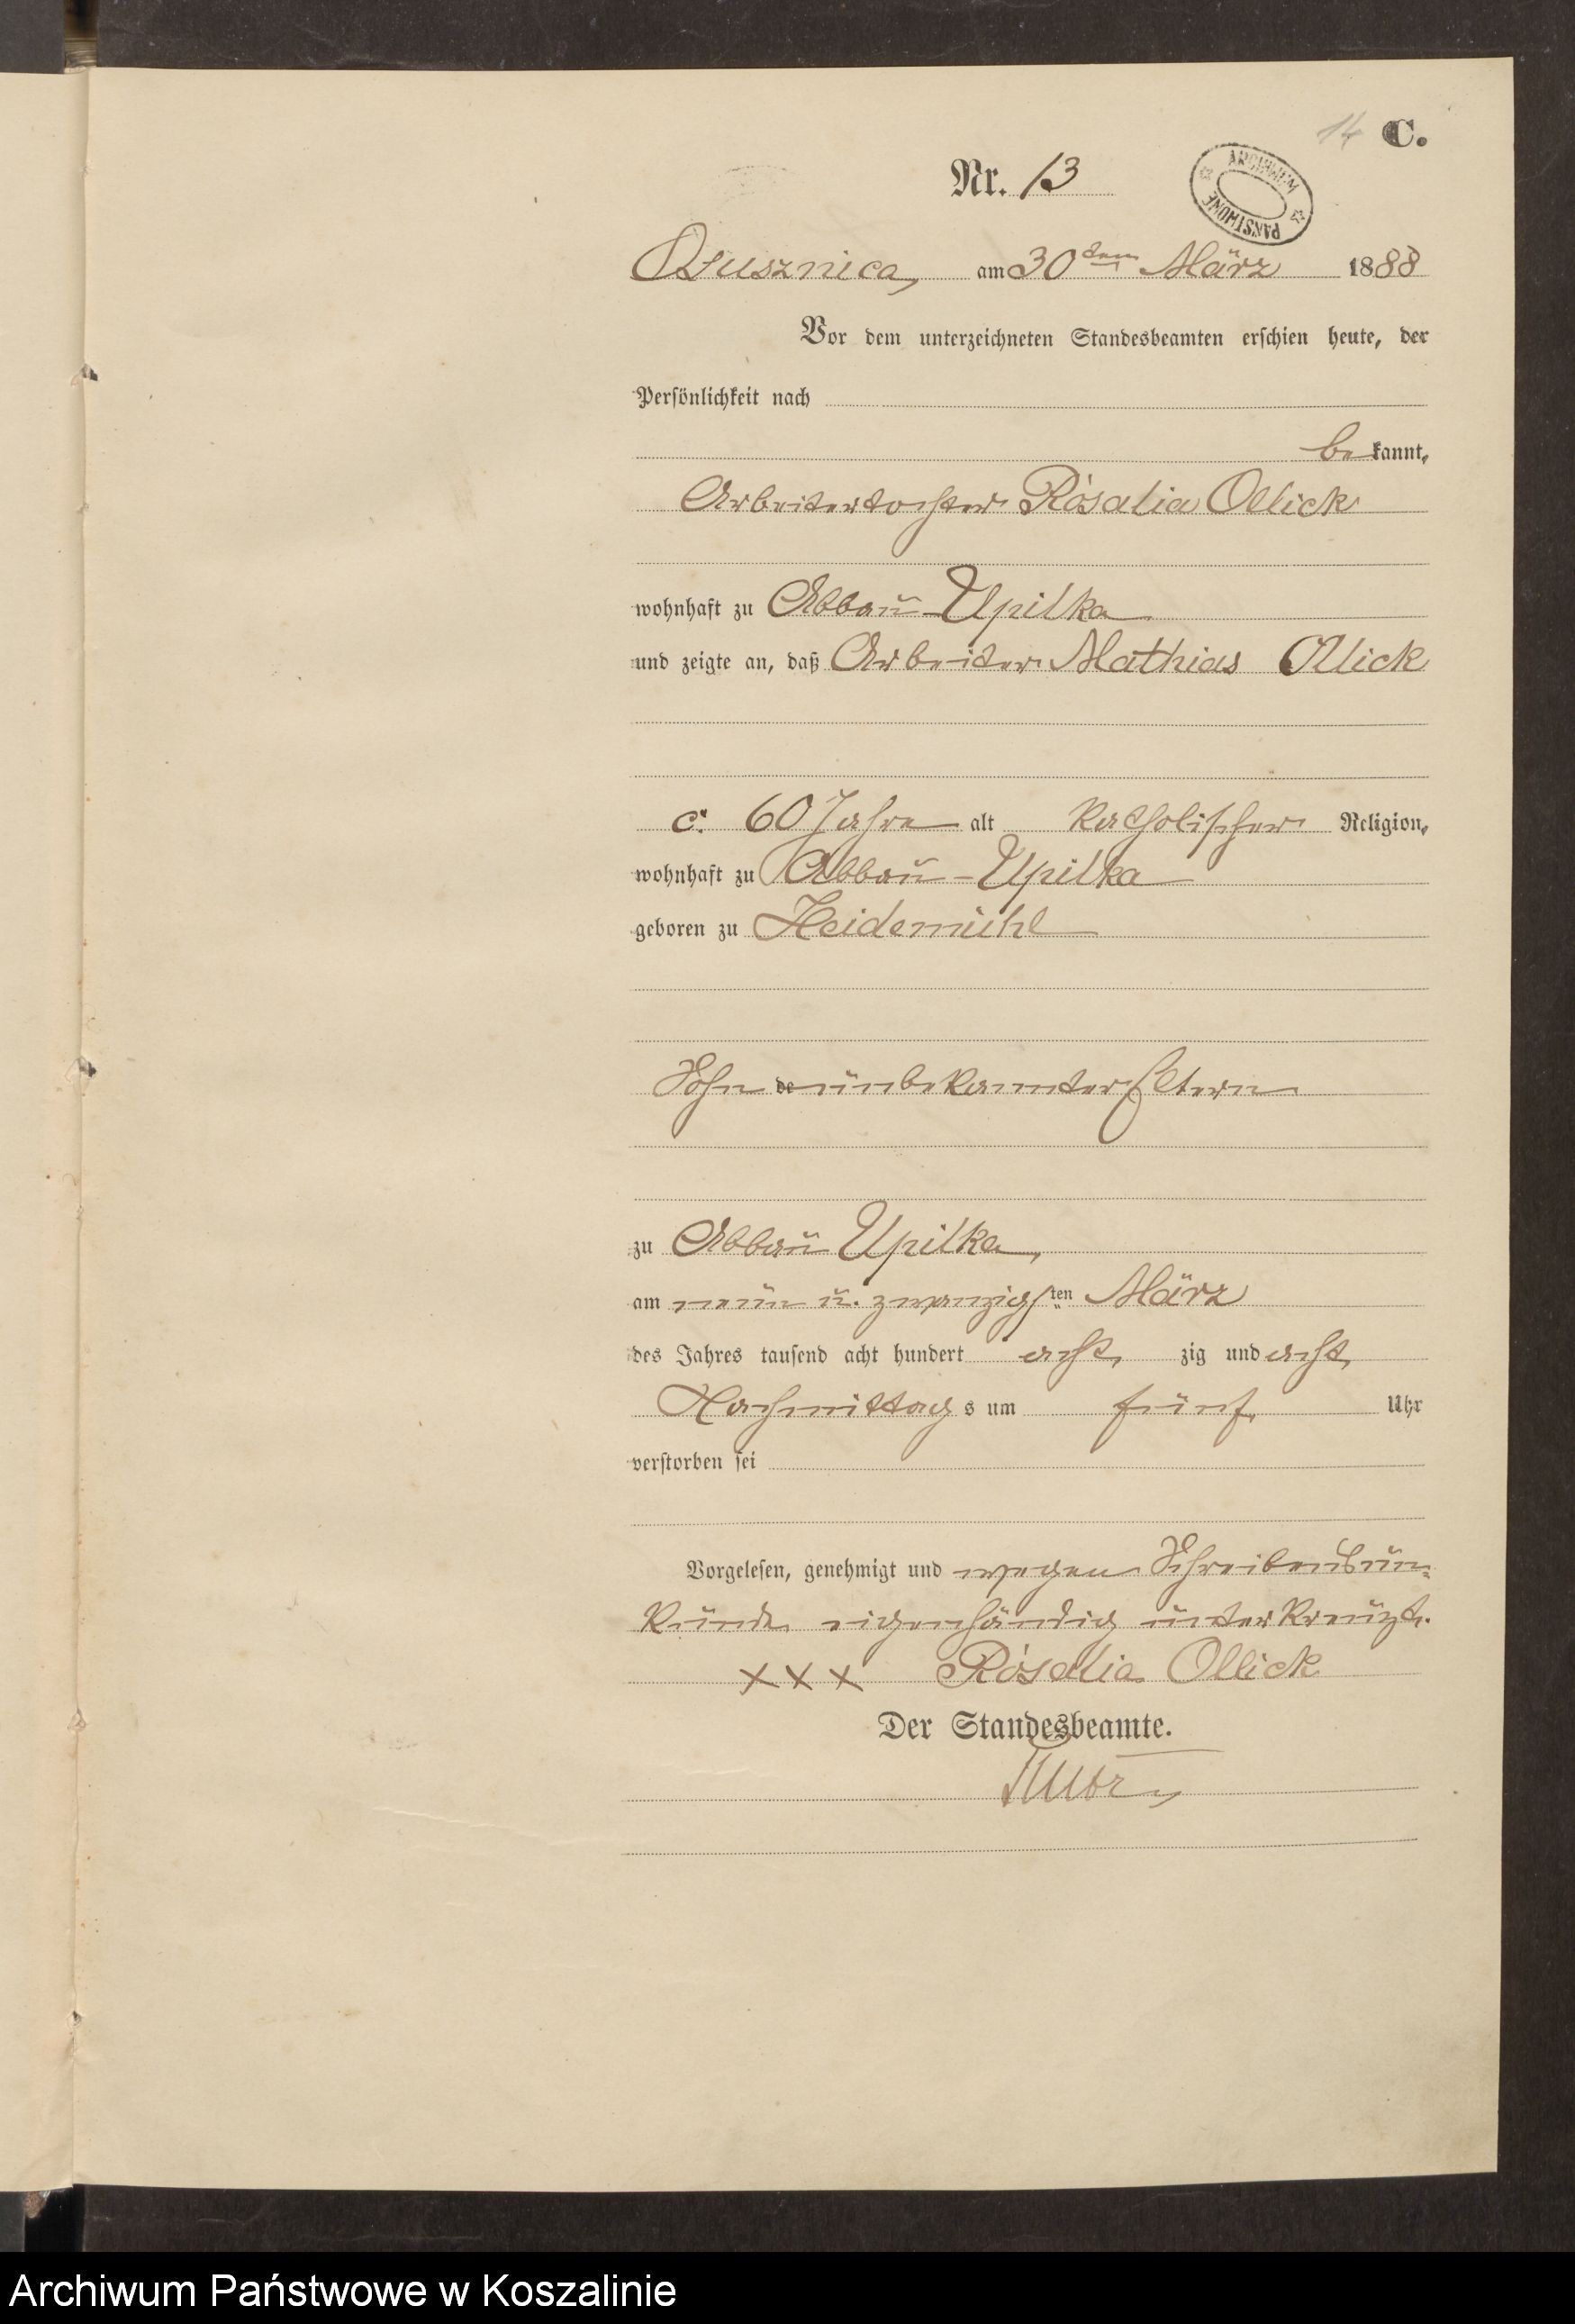 14 C.
Nr. 13
ARCHIWUM PAŃSTWOWE
Osusznica, am 30ten März 1888
Vor dem unterzeichneten Standesbeamten erschien heute, der
Persönlichkeit nach
bekannt,
Arbeitertochter Rosalia Ollick
wohnhaft zu Abbau-Upilka
und zeigte an, daß Arbeiter Mathias Ollick
c. 60 Jahre alt katholischer Religion,
wohnhaft zu Abbau-Upilka
geboren zu Heidemühl
Sohn de unbekannter Eltern
zu Abbau Upilka,
am neun u. zwanzigsten März
des Jahres tausend acht hundert acht zig und acht
Nachmittags um fünf Uhr
verstorben sei
Vorgelesen, genehmigt und wegen Schreibensun-
kunde eigenhändig unterkreuzt.
xxx Rosalia Ollick
Der Standesbeamte.
Archiwum Państwowe w Koszalinie